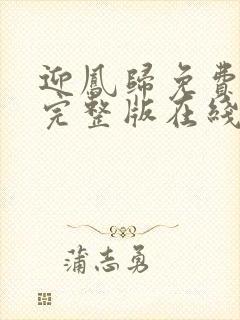 迎鳳歸免費
完整版在綫
蒲志勇